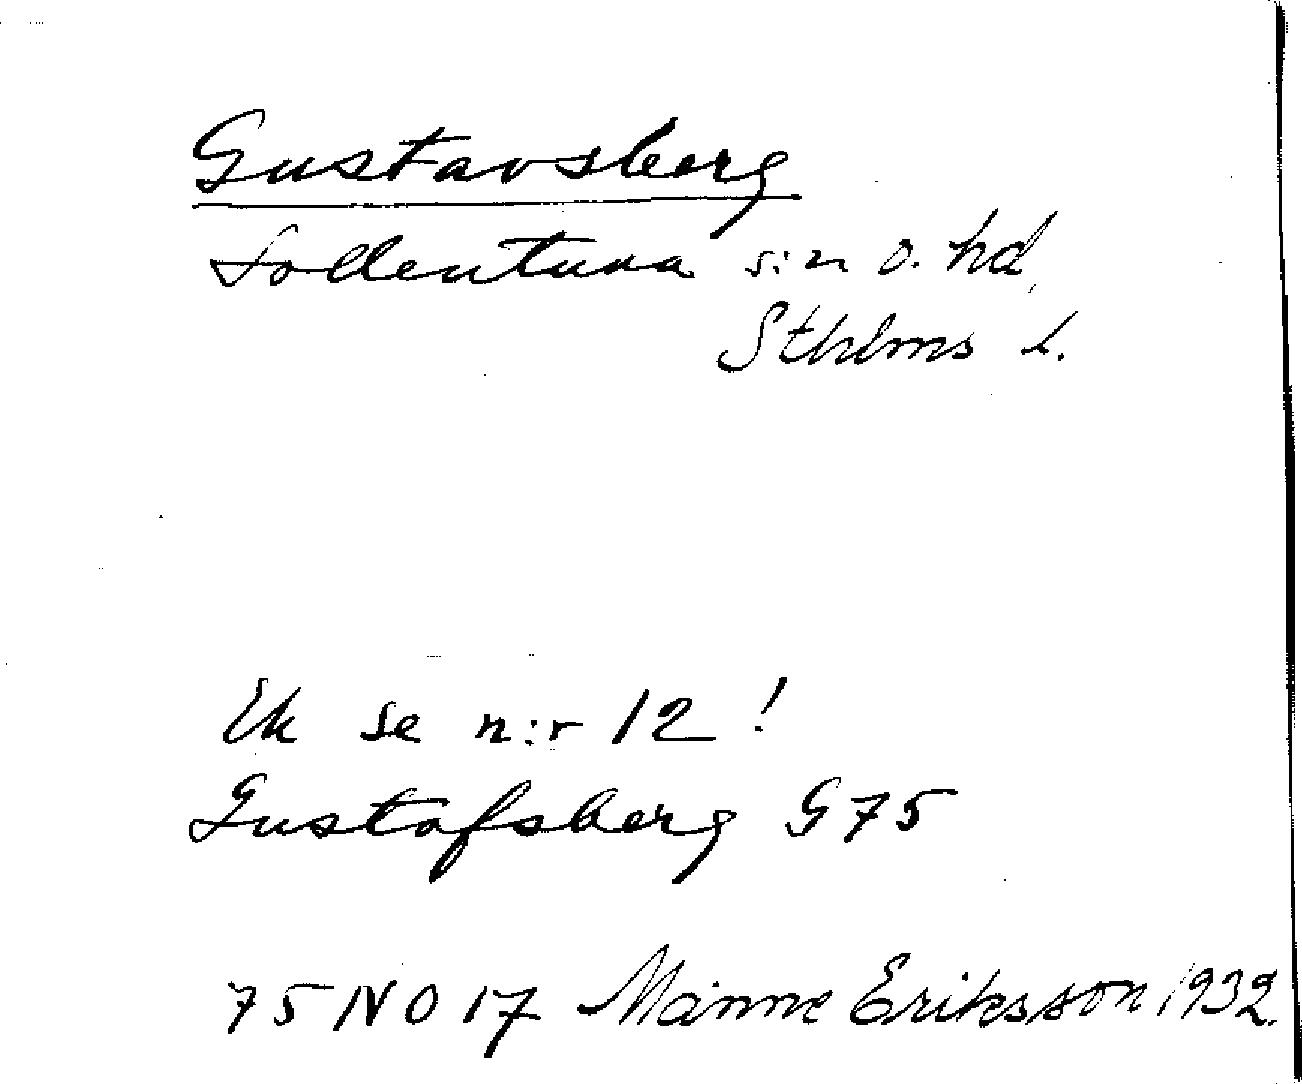 Gustavsberg
Sollentuna s:n o. hd,
Sthlms l.
Ek se n:r 12 !
Gustafsberg G 75
75 NO 17 Manne Eriksson 1932.